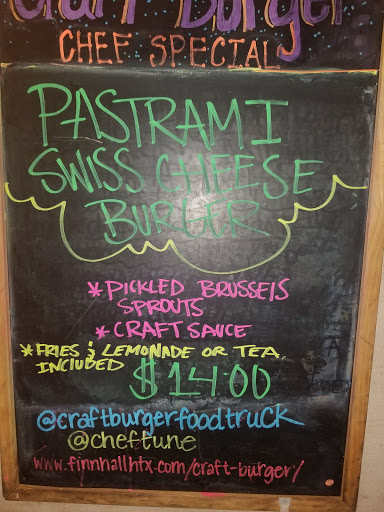 Craft Burger
CHEF SPECIAL
PASTRAMI
SWISS CHEESE
BURGER
* PICKLED BRUSSELS
SPROUTS
* CRAFT SAUCE
* FRIES & LEMONADE OR TEA
INCLUDED
$14.00
@craftburgerfoodtruck
@cheftune
www.finnhallhtx.com/craft-burger/